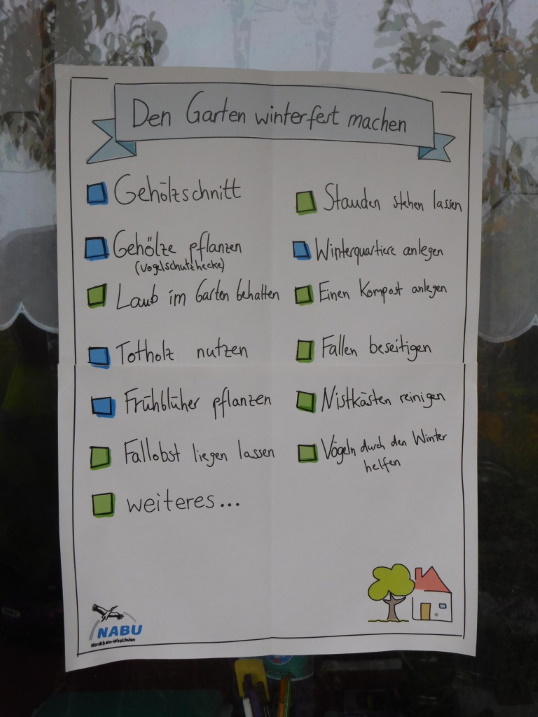 Den Garten winterfest machen
Gehölzschnitt
Gehölze pflanzen
(Vogelschutzhecke)
Laub im Garten behalten
Totholz nutzen
Frühblüher pflanzen
Fallobst liegen lassen
weiteres...
Stauden stehen lassen
Winterquartiere anlegen
Einen Kompost anlegen
Fallen beseitigen
Nistkästen reinigen
Vögeln durch den Winter
helfen
NABU